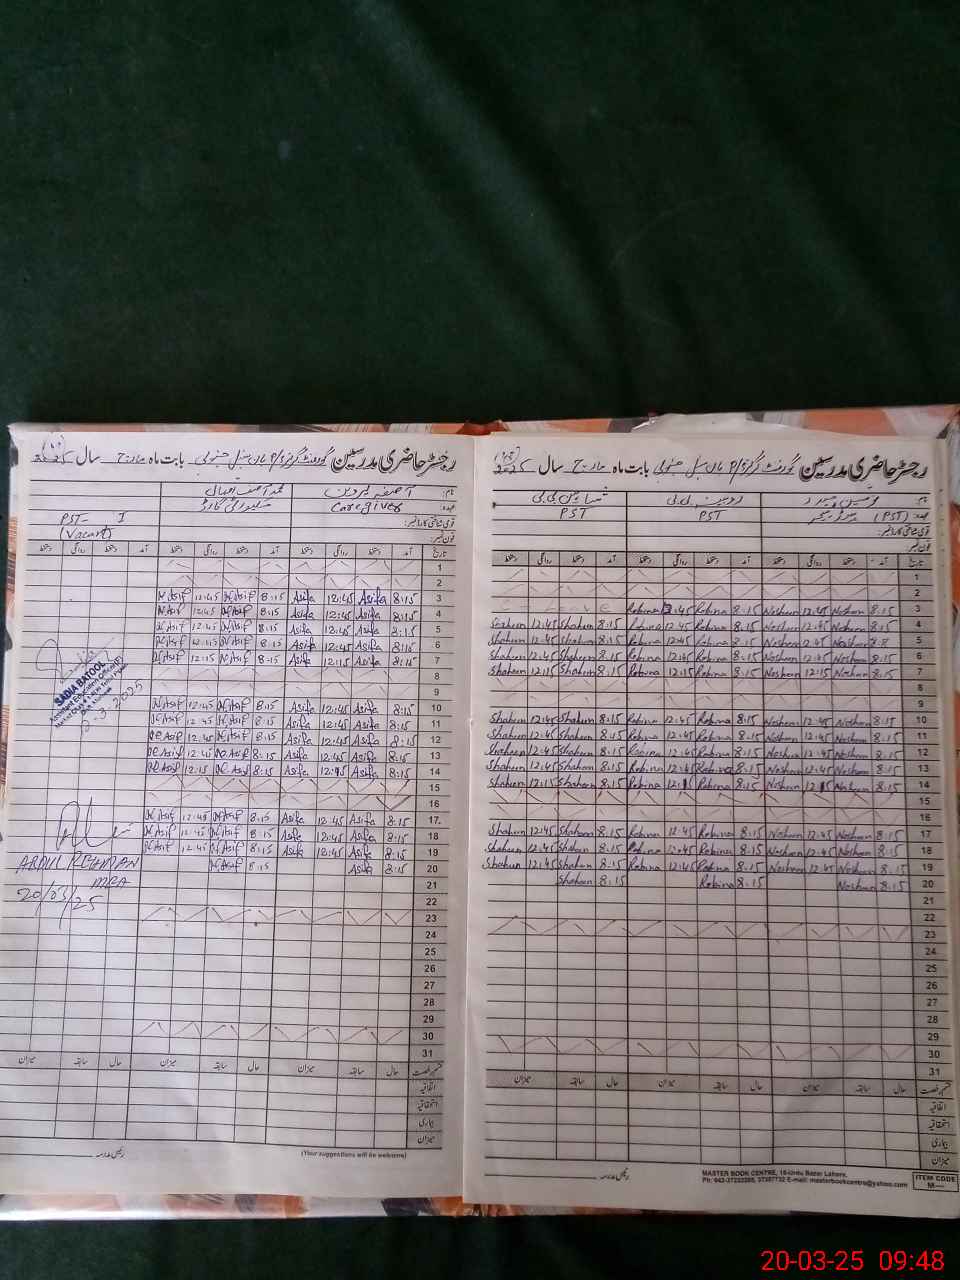 رجسٹر حاضری مدرسین گورنمنٹ گرلز بابت ماہ مارچ سال 2025
نام: آصفہ پروین محمد آصف اقبال
عہدہ: Caregiver سکیورٹی گارڈ PST- I
قومی شناختی کارڈ نمبر: (Vacant)
فون نمبر:
تاریخ آمد دستخط روانگی دستخط آمد دستخط روانگی دستخط آمد دستخط روانگی دستخط
1
2
3 8:15 Asifa 12:45 Asifa 8:15 M Asif 12:45 M Asif
4 8:15 Asifa 12:45 Asifa 8:15 M Asif 12:45 M Asif
5 8:15 Asifa 12:45 Asifa 8:15 M Asif 12:45 M Asif
6 8:15 Asifa 12:45 Asifa 8:15 M Asif M Asif
7 8:15 Asifa 12:15 Asifa 8:15 M Asif 12:15 M Asif
8
9
10 8:15 Asifa 12:45 Asifa 8:15 M Asif 12:45 M Asif
11 8:15 Asifa 12:45 Asifa 8:15 M Asif 12:45 M Asif
12 8:15 Asifa 12:45 Asifa 8:15 M Asif 12:45 M Asif
13 8:15 Asifa 12:45 Asifa 8:15 M Asif 12:45 M Asif
14 8:15 Asifa 12:15 Asifa 8:15 M Asif 12:15 M Asif
15
16
17 8:15 Asifa 12:45 Asifa 8:15 M Asif 12:45 M Asif
18 8:15 Asifa 12:45 Asifa 8:15 M Asif 12:45 M Asif
19 8:15 Asifa 12:45 Asifa 8:15 M Asif 12:45 M Asif
20 8:15 Asifa 8:15 M Asif
21
22
23
24
25
26
27
28
29
30
31
SADIA BATOOL
3.2025
ABDUL REHMAN
MEA
20/03/25
قسم رخصت حال سابقہ میزان حال سابقہ میزان حال سابقہ میزان
اتفاقیہ
استحقاقیہ
بیماری
میزان
رئیس مدرسہ
(Your suggestions will be welcome)
رجسٹر حاضری مدرسین گورنمنٹ گرلز بابت ماہ مارچ سال 2025
نام: روبینہ بی بی شاہین بی بی
عہدہ: (PST) PST PST
قومی شناختی کارڈ نمبر:
فون نمبر:
تاریخ آمد دستخط روانگی دستخط آمد دستخط روانگی دستخط آمد دستخط روانگی دستخط
1
2
3 8:15 Nosheen 12:45 Nosheen 8:15 Robina 12:45 Robina Leave
4 8:15 Nosheen 12:45 Nosheen 8:15 Robina 12:45 Robina 8:15 Shaheen 12:45 Shaheen
5 Nosheen 12:45 Nosheen 8:15 Robina 12:45 Robina 8:15 Shaheen 12:45 Shaheen
6 8:15 Nosheen 12:45 Nosheen 8:15 Robina 12:45 Robina 8:15 Shaheen 12:45 Shaheen
7 8:15 Nosheen 12:15 Nosheen 8:15 Robina 12:15 Robina 8:15 Shaheen 12:15 Shaheen
8
9
10 8:15 Nosheen 12:45 Nosheen 8:15 Robina 12:45 Robina 8:15 Shaheen 12:45 Shaheen
11 8:15 Nosheen 12:45 Nosheen 8:15 Robina 12:45 Robina 8:15 Shaheen 12:45 Shaheen
12 8:15 Nosheen 12:45 Nosheen 8:15 Robina 12:45 Robina 8:15 Shaheen 12:45 Shaheen
13 8:15 Nosheen 12:45 Nosheen 8:15 Robina 12:45 Robina 8:15 Shaheen 12:45 Shaheen
14 8:15 Nosheen 12:15 Nosheen 8:15 Robina 12:15 Robina 8:15 Shaheen 12:15 Shaheen
15
16
17 8:15 Nosheen 12:45 Nosheen 8:15 Robina 12:45 Robina 8:15 Shaheen 12:45 Shaheen
18 8:15 Nosheen 12:45 Nosheen 8:15 Robina 12:45 Robina 8:15 Shaheen 12:45 Shaheen
19 8:15 Nosheen 12:45 Nosheen 8:15 Robina 12:45 Robina 8:15 Shaheen 12:45 Shaheen
20 8:15 Nosheen 8:15 Robina 8:15 Shaheen
21
22
23
24
25
26
27
28
29
30
31
قسم رخصت حال سابقہ میزان حال سابقہ میزان حال سابقہ میزان
اتفاقیہ
استحقاقیہ
بیماری
میزان
رئیس مدرسہ
MASTER BOOK CENTRE, 18-Urdu Bazar Lahore.
E-mail: masterbookcentre@yahoo.com
ITEM CODE
M—
20-03-25 09:48